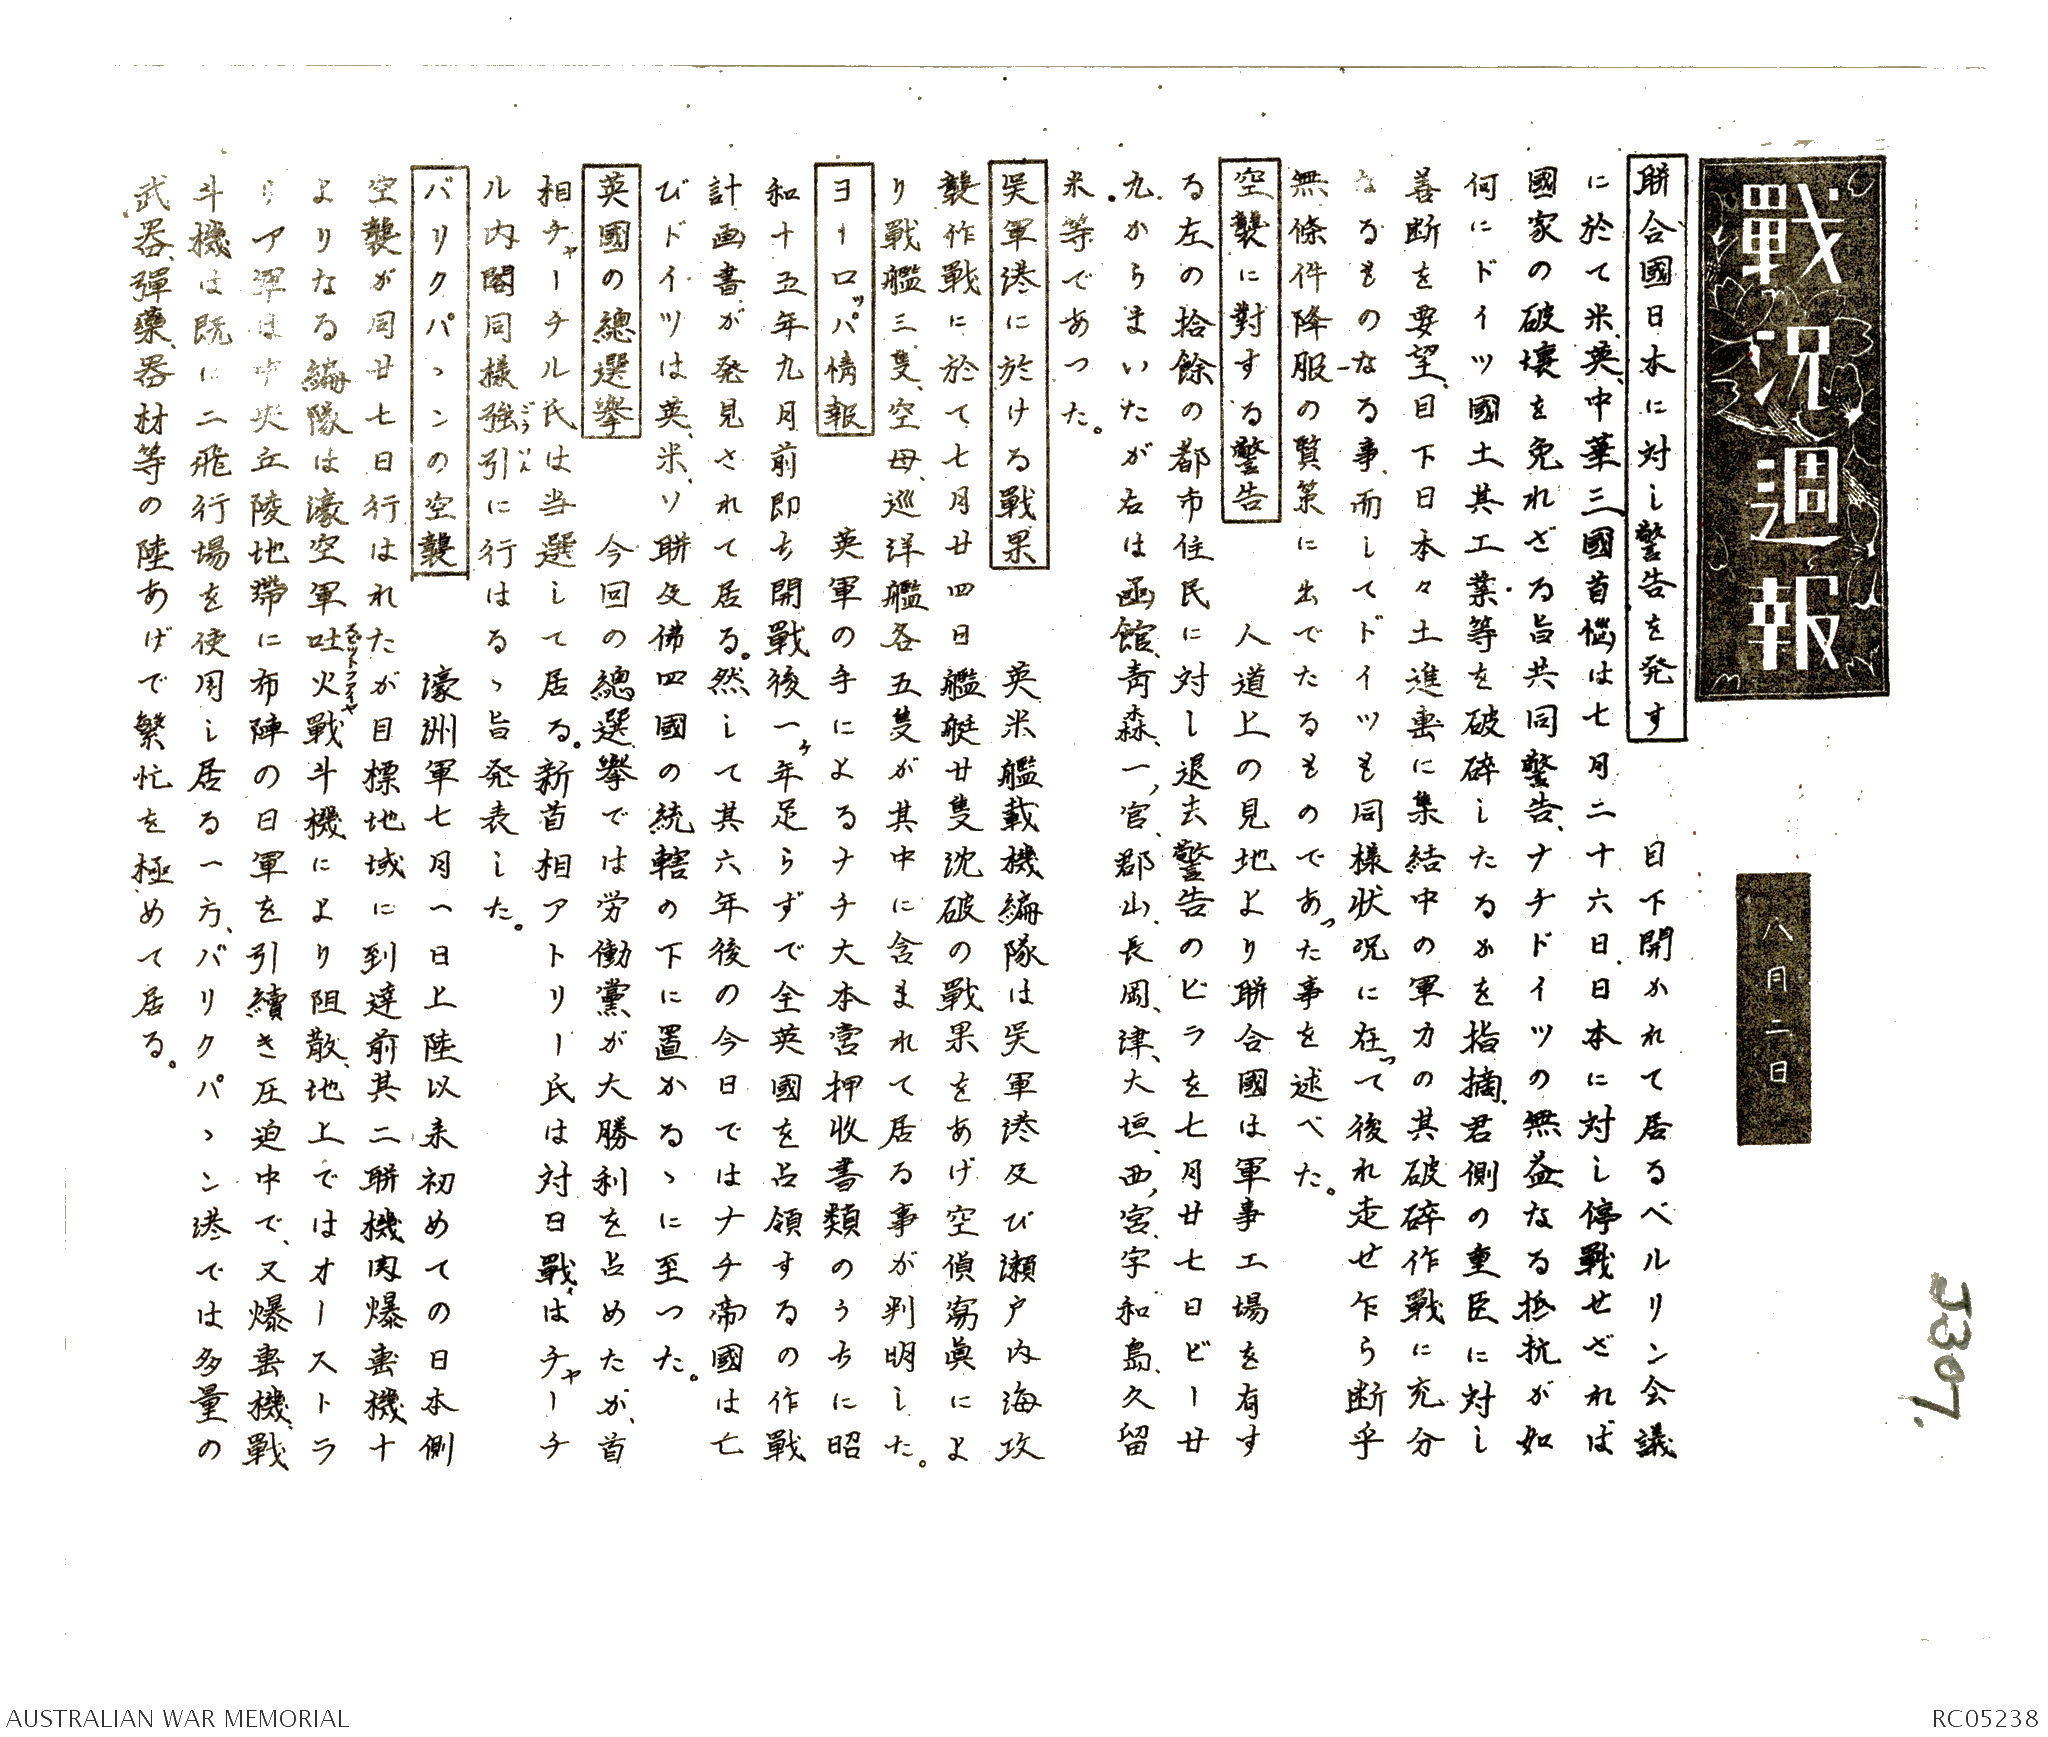 戰況週報
八月二日
J307.
聯合國日本に対し警告を発す 目下開かれて居るベルリン会議
に於て米、英、中華三國首悩は七月二十六日、日本に対し停戰せざれば
國家の破壊を免れざる旨共同警告、ナチドイツの無益なる抵抗が如
何にドイツ國土其工業等を破碎したるかを指摘、君側の重臣に対し
善断を要望、目下日本々土進軎に集結中の軍力の其破碎作戰に充分
なるものなる事、而してドイツも同様状況に在って後れ走せ乍ら断乎
無條件降服の賢策に出でたるものであった事を述べた。
空襲に對する警告 人道上の見地より聯合國は軍事工場を有す
る左の拾餘の都市住民に対し退去警告のビラを七月廿七日ビー廿
九からまいたが右は函館、靑森、一宮、郡山、長岡、津、大垣、西宮、宇和島、久留
米等であつた。
吳軍港に於ける戰果 英米艦載機編隊は吳軍港及び瀬戸内海攻
襲作戰に於て七月廿四日艦艇廿隻沈破の戰果をあげ空偵寫眞によ
り戰艦三隻、空母、巡洋艦各五隻が其中に含まれて居る事が判明した。
ヨーロッパ情報 英軍の手によるナチ大本営押收書類のうちに昭
和十五年九月前即ち開戰後一ヶ年足らずで全英國を占領するの作戰
計画書が発見されて居る。然して其六年後の今日ではナチ帝國は亡
びドイツは英、米、ソ聯及佛四國の統轄の下に置かるゝに至つた。
英國の總選擧 今回の總選挙では労働黨が大勝利を占めたが、首
相チャーチル氏は当選して居る。新首相アトリー氏は対日戰はチャーチ
ル内閣同様強引に行はるゝ旨発表した。
バリクパヽンの空襲 濠洲軍七月一日上陸以来初めての日本側
空襲が同廿七日行はれたが目標地域に到達前其二聯機肉爆軎機十
よりなる編隊は濠空軍吐火戰斗機により阻散、地上ではオーストラ
リア軍は中央丘陵地帶に布陣の日軍を引續き圧迫中で、又爆軎機、戰
斗機は既に二飛行場を使用し居る一方、バリクパヽン港では多量の
武器、彈藥、器材等の陸あげで繁忙を極めて居る。
AUSTRALIAN WAR MEMORIAL
RC05238